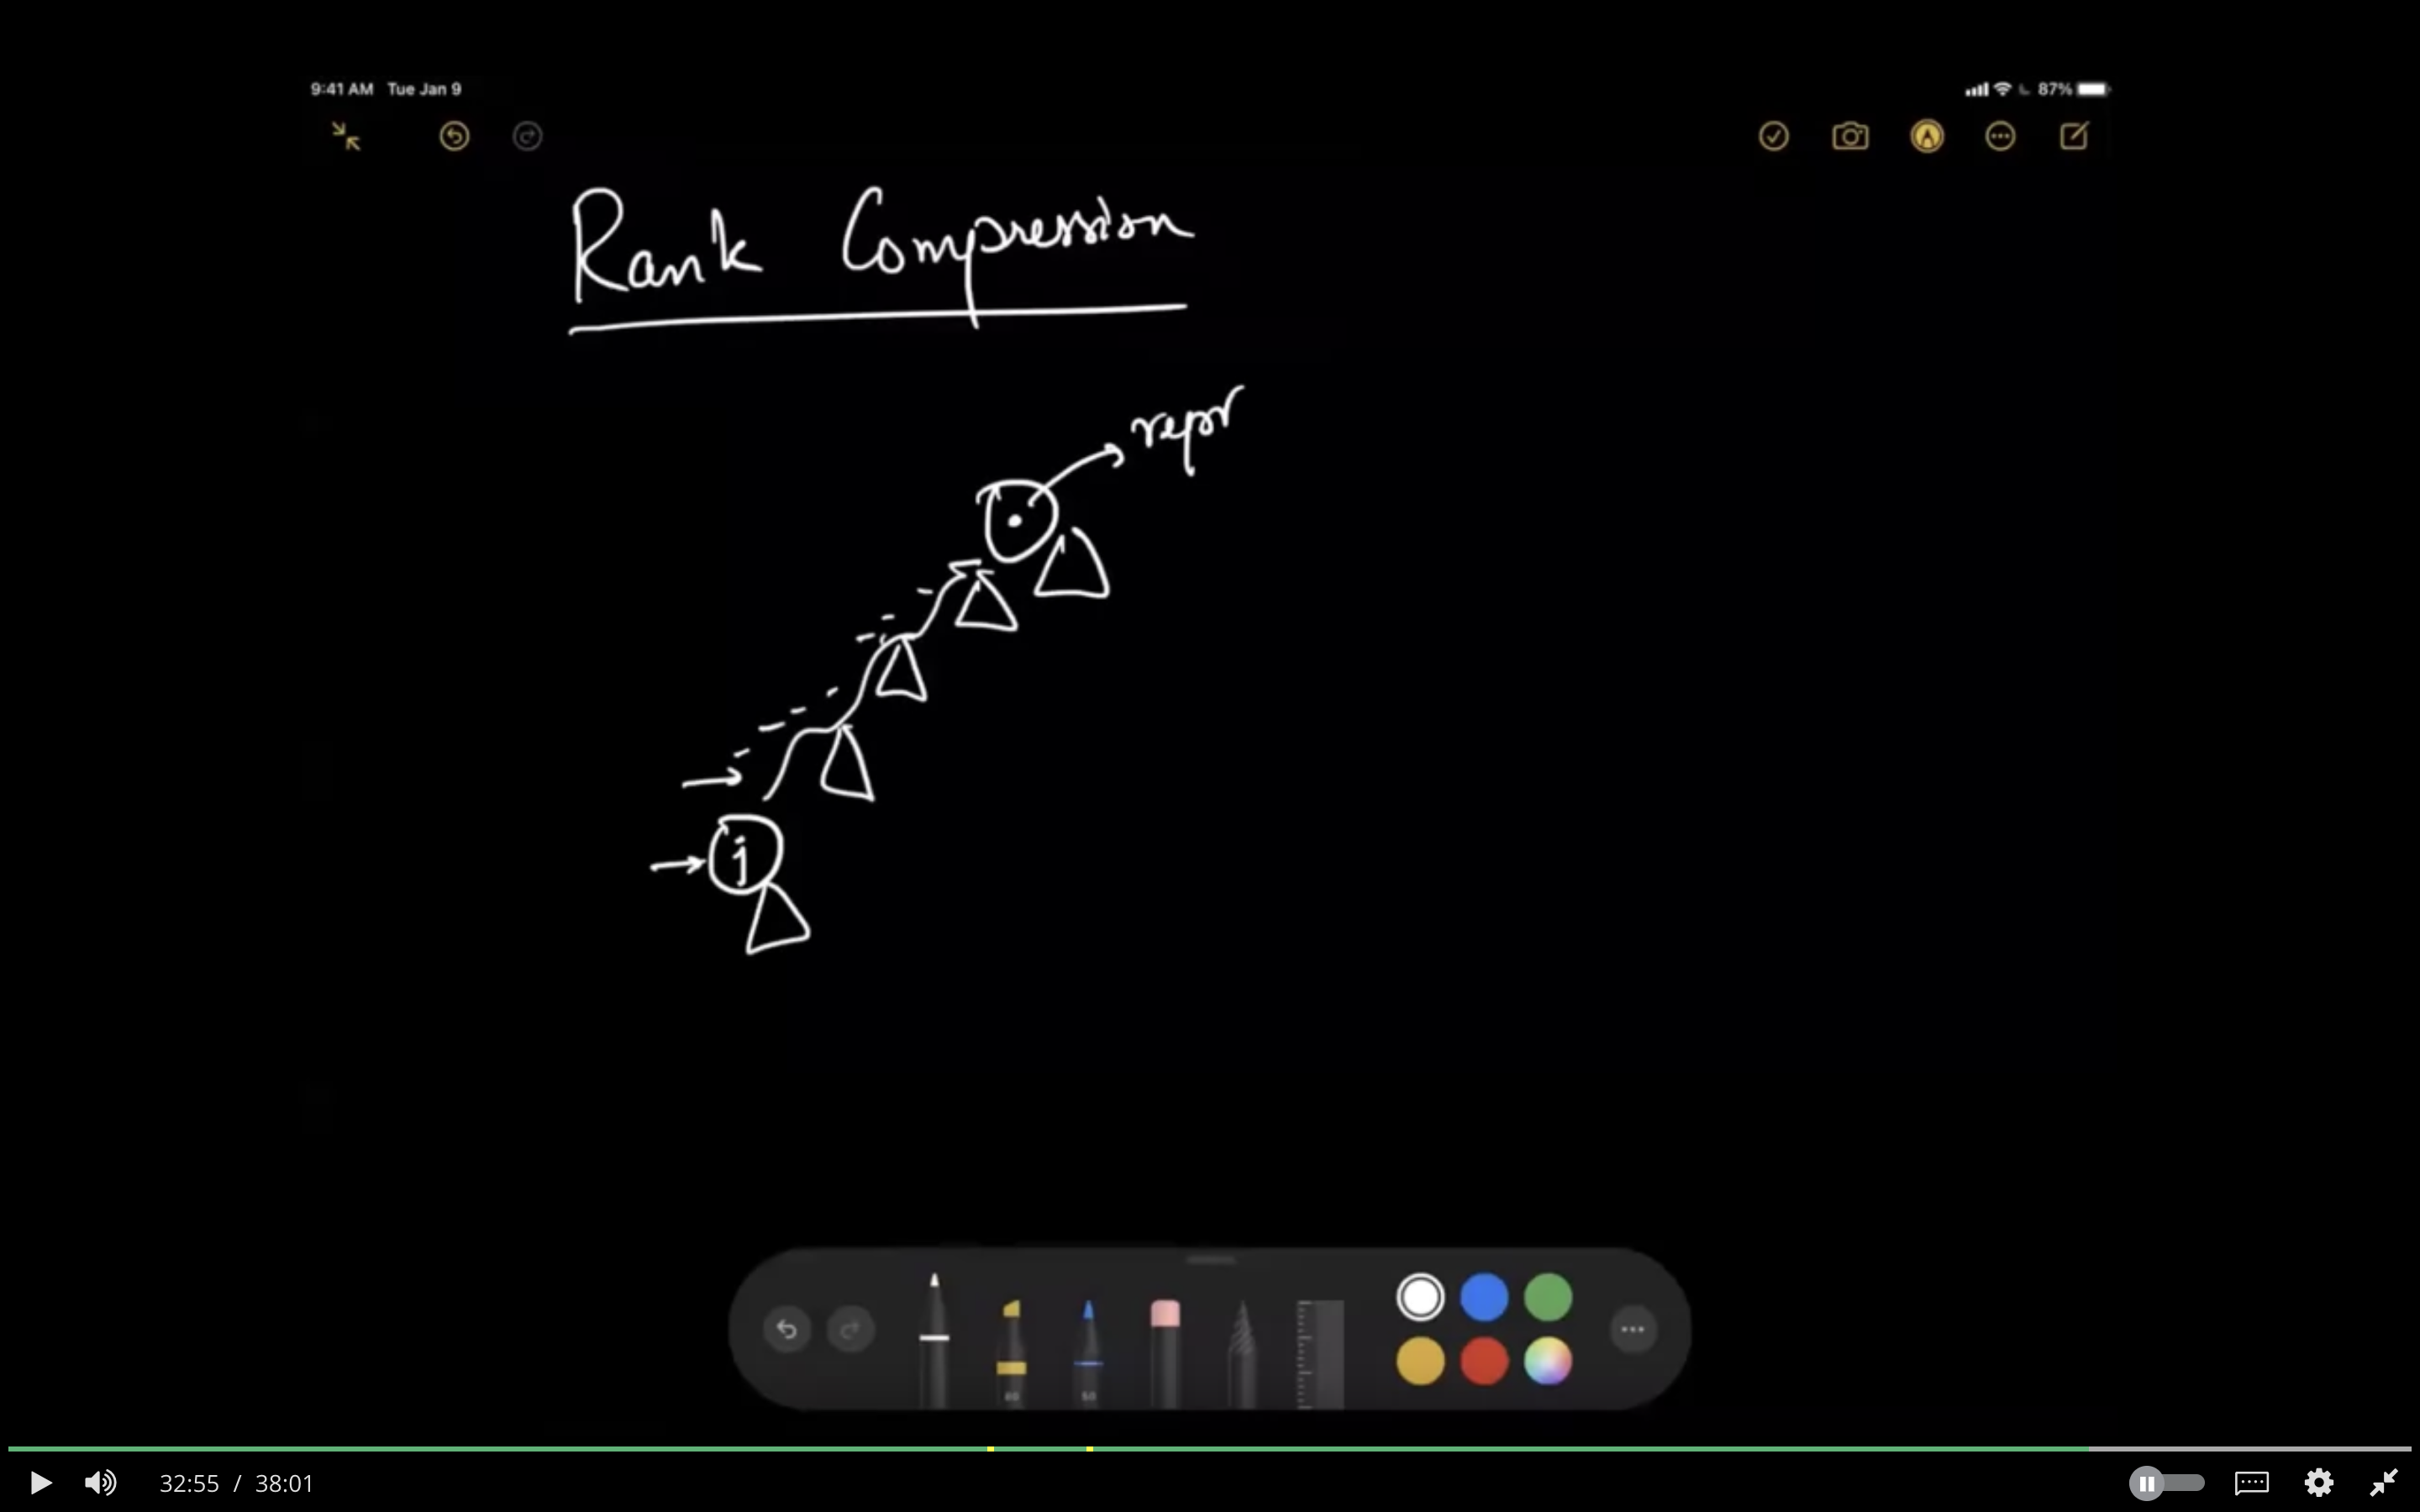 9:41 AM Tue Jan 9 87%
Rank Compression
repr
j
80 50
32:55 / 38:01